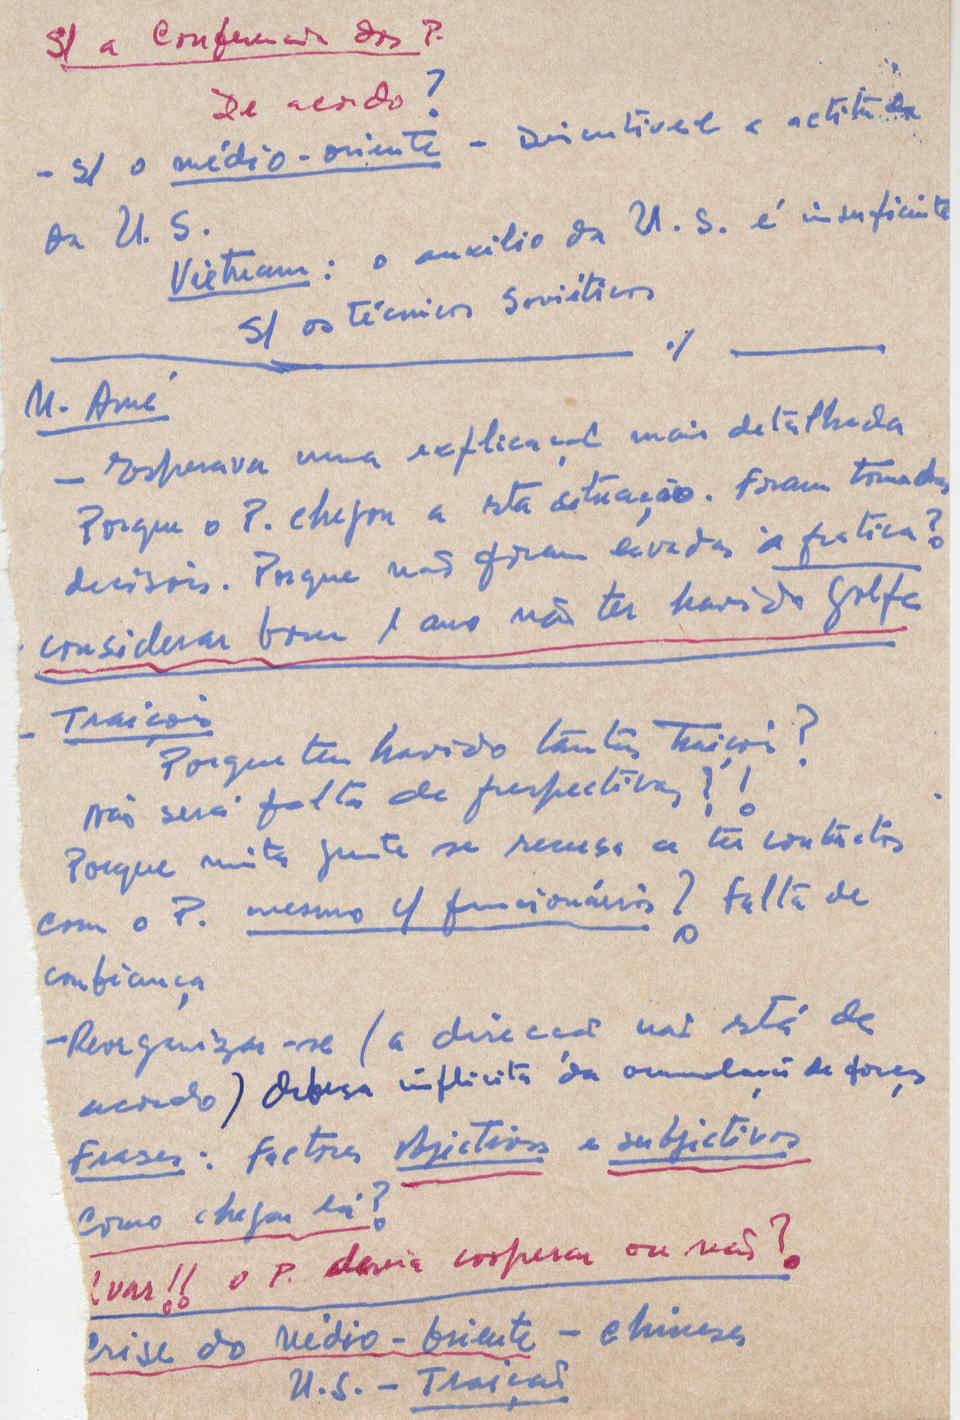 S/ a Conferencia dos P.
De acordo?
- S/ o médio-oriente - Discutível a actitude
da U. S.
Vietnam: o auxilio da U. S. é insuficiente
S/ os técnicos Soviéticos
./
U. Amé
- Esperava uma explicação mais detalhada
Porque o P. chegou a esta situação. Foram tomadas
decisois. Porque não foram levadas à pratica?
considerar bom 1 ano não ter havido golpe
- Traiçois
Porque tem havido tantas Traiçois?
Não será falta de perspectivas?!
Porque muita gente se recusa a ter contactos
com o P. mesmo c/ funcionários? Falta de
confiança
- Reorganizar-se (a direccão não está de
acordo) defesa implicita da acumulação de forças
Frases: Factores objectivos e subjectivos
Como chegar lá?
var!! o P. devia cooperar ou não?
Crise do Médio-Oriente - chineses
U.S. - Traição